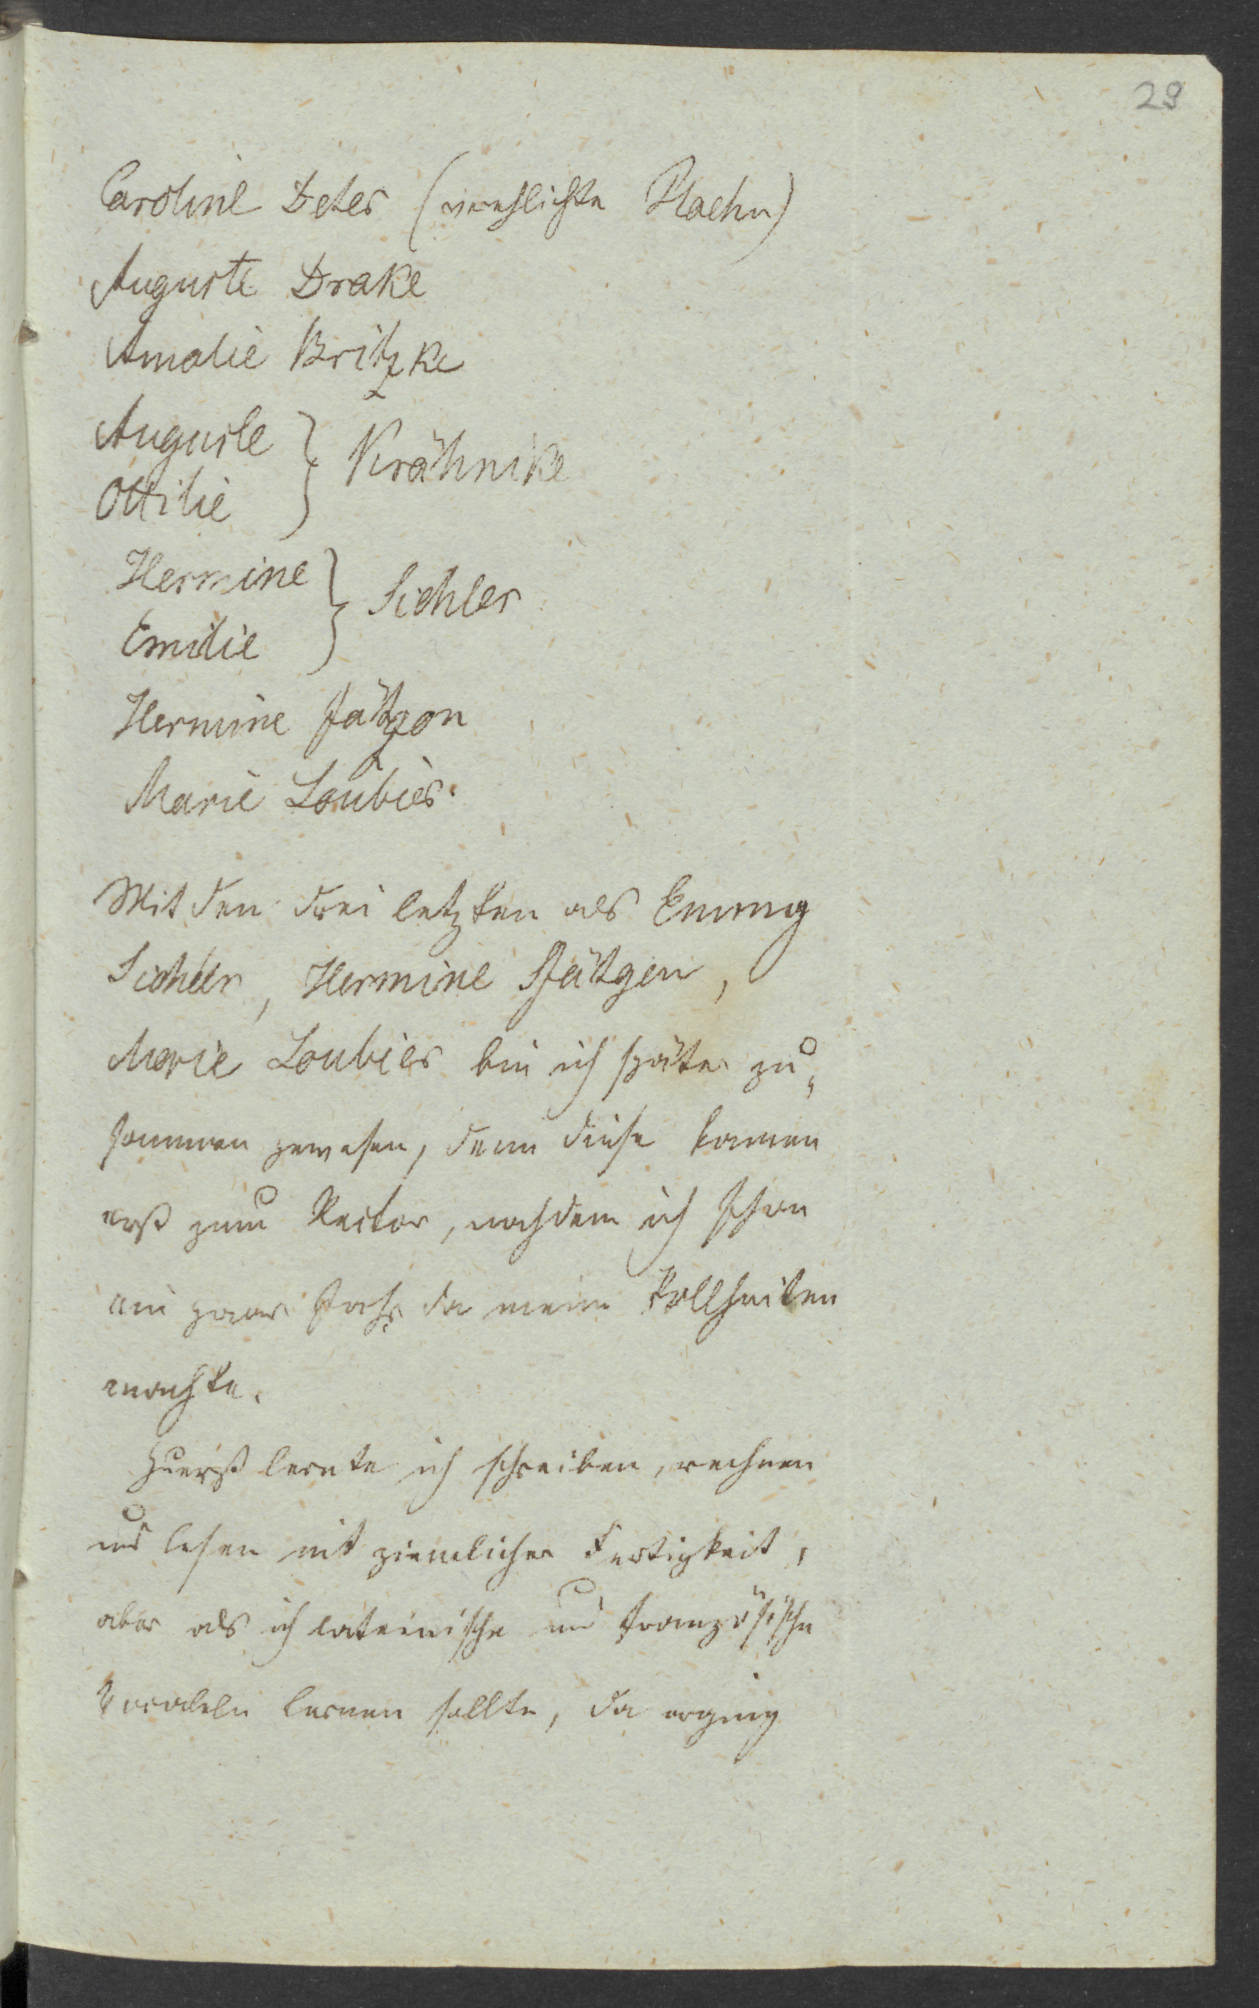 29
Caroline Deter (verehlichte Plaehn)
Auguste Drake
Amalie Britzke
Auguste } Krähnike
Ottilie
Hermine } Sichler
Emilie
Hermine Jätzgen
Marie Loubier.
Mit den drei letzten als Emmy
Sichler, Hermine Jätzgen,
Marie Loubier bin ich später zu-
sammen gewesen, denn diese kamen
erst zum Rector, nachdem ich schon
ein paar Jahr da meine Tollheiten
machte.
Zuerst lernte ich schreiben, rechnen
und lesen mit ziemlicher Fertigkeit,
aber als ich lateinische und französische
Vocabeln lernen sollte, da erging